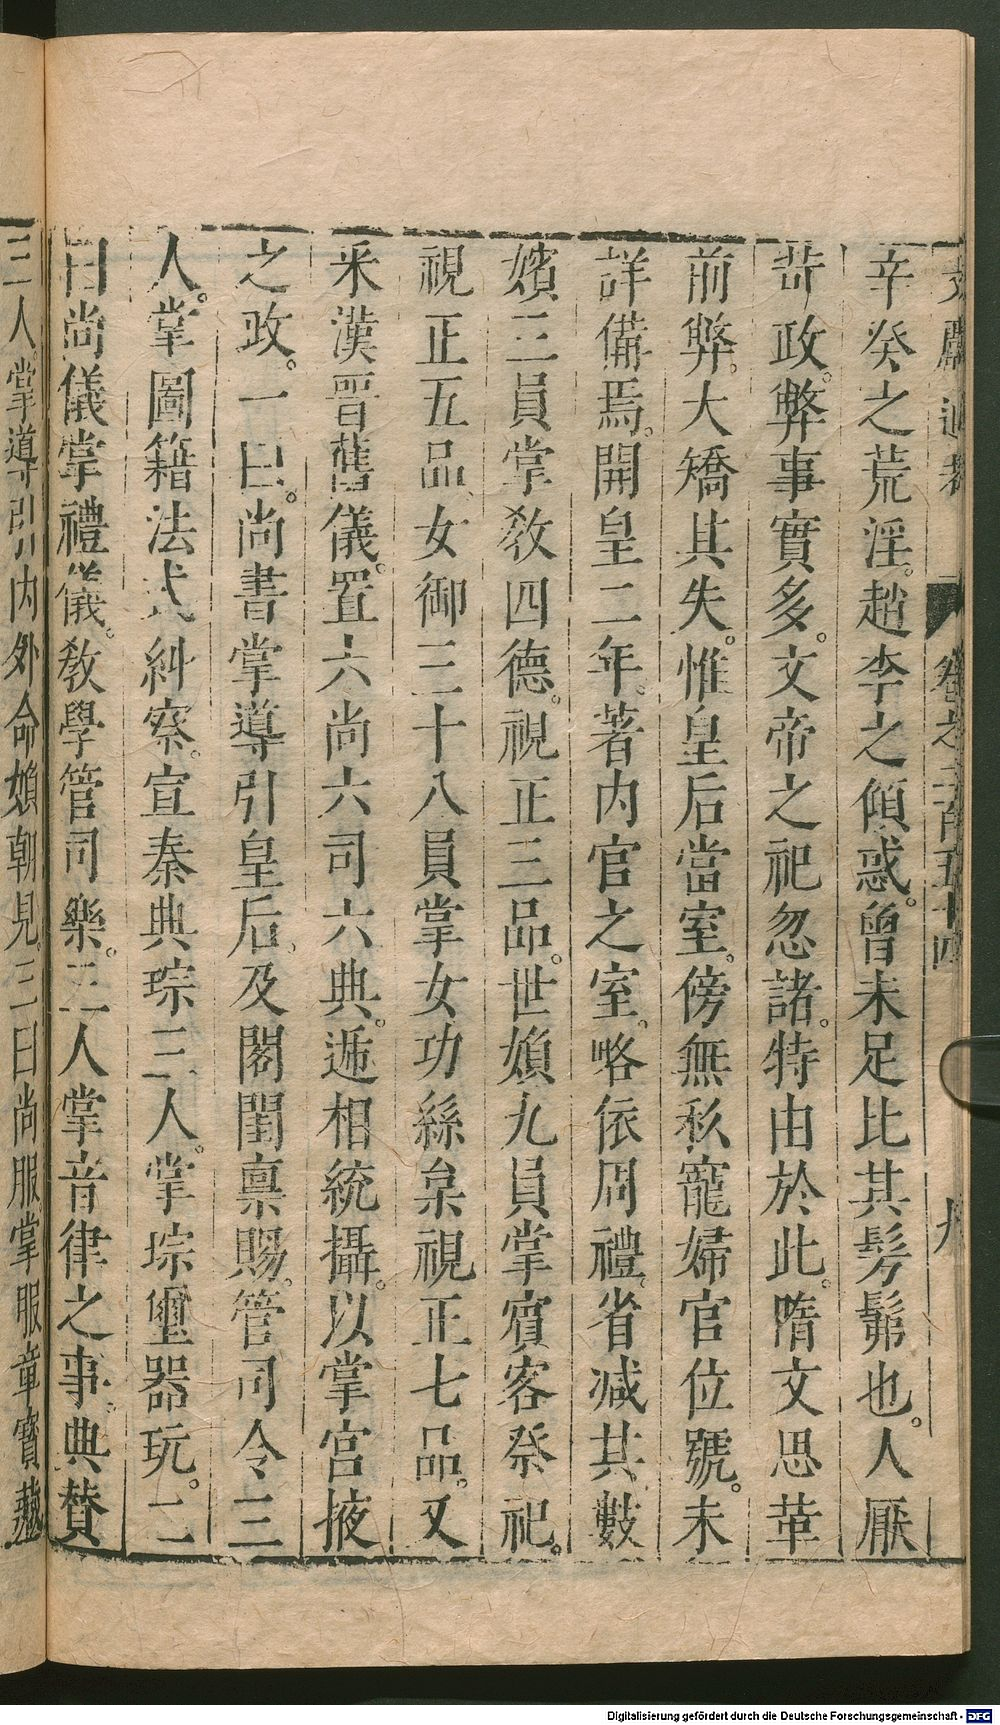 文獻通考 卷之二百五十四 九
辛癸之荒淫。趙李之傾惑。曾未足比其髣髴也。人厭
苛政。弊事實多。文帝之祀忽諸。特由於此。隋文思革
前弊。大矯其失。惟皇后當室。傍無私寵婦官位號。未
詳備焉。開皇二年。著内官之室。略依周禮。省减其數
嬪三員掌教四德。視正三品。世嬪九員掌賓客祭祀。
視正五品。女御三十八員掌女功絲枲視正七品。又
釆漢晋舊儀。置六尚六司六典。遞相統攝。以掌宮掖
之政。一曰。尚書掌導引皇后。及閤閨禀賜。管司令三
人。掌圖籍法式糾察。宣秦典琮三人。掌琮璽器玩。二
曰尚儀掌禮儀。教學管司樂。三人掌音律之事。典賛
三人。掌導引内外命嬪朝見。三曰尚服掌服章寶藏
Digitalisierung gefördert durch die Deutsche Forschungsgemeinschaft - DFG